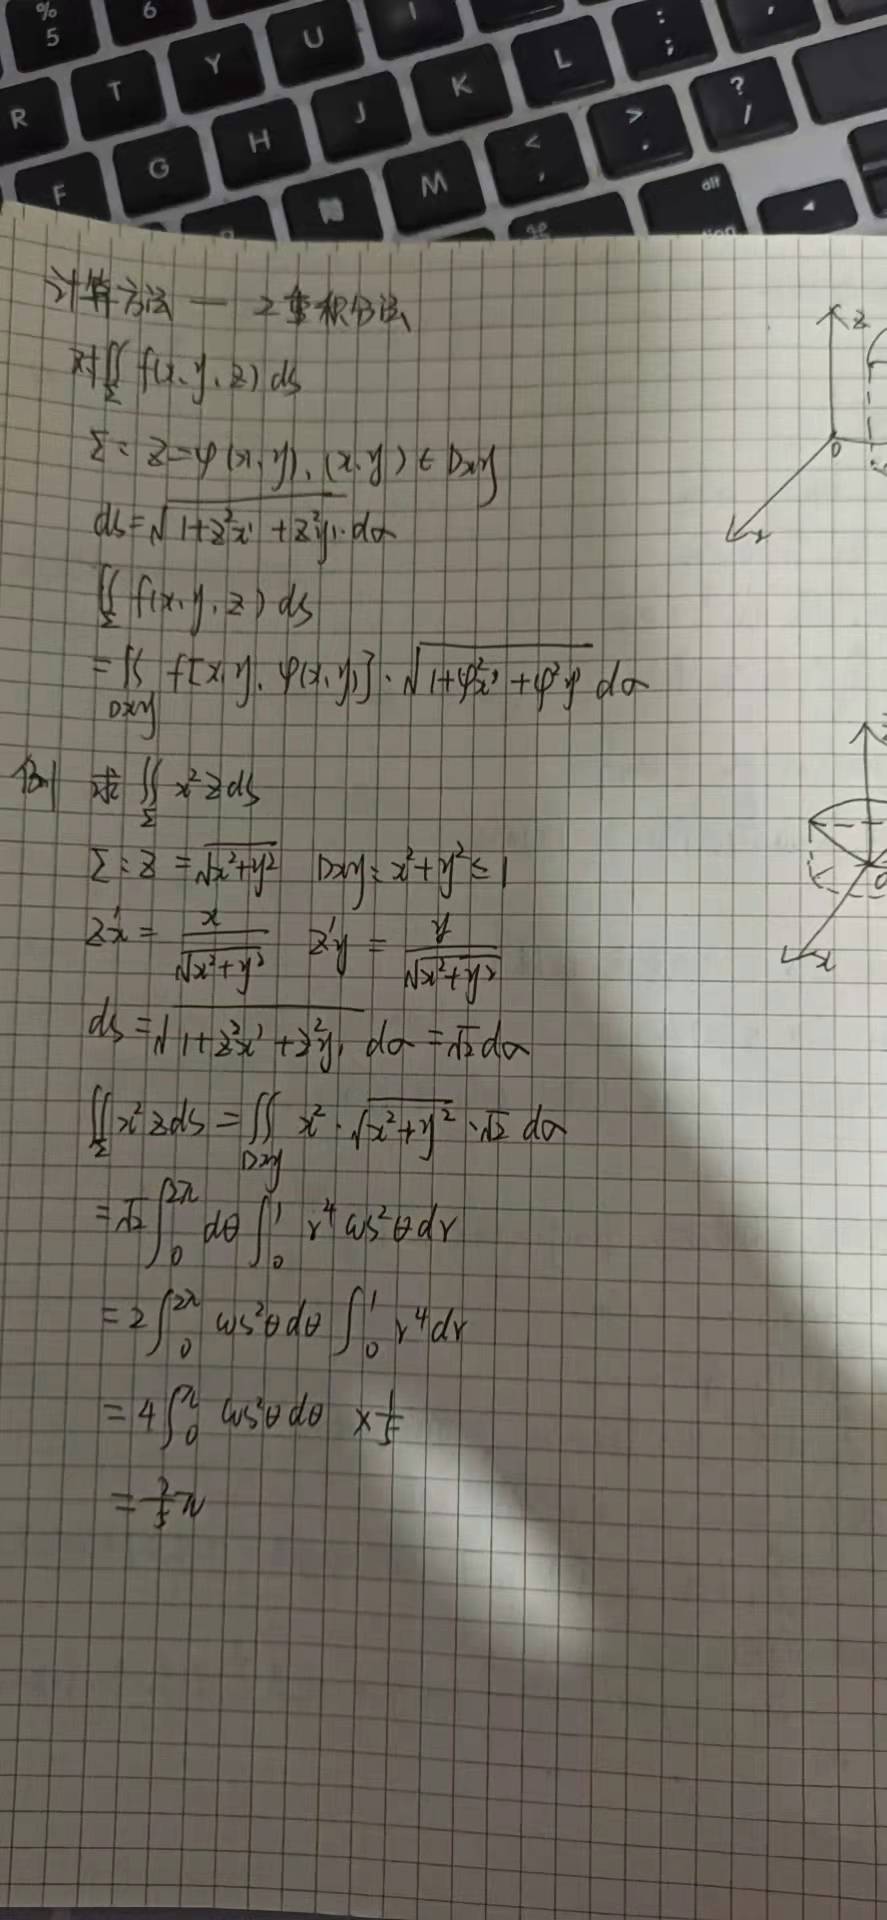 % 5
6
R T Y U I
F G H J K L : ;
M < , > . ? /
alt
计算方法 — 2重积分法
对∬_Σ f(x,y,z) ds
Σ: z=φ(x,y), (x,y)∈Dxy
ds=√(1+z²x' + z²y') · dσ
∬_Σ f(x,y,z) ds
=∬_Dxy f[x,y,φ(x,y)] · √(1+φ²x' + φ²y') dσ
例 求 ∬_Σ x²zds
Σ: z = √(x²+y²) Dxy: x²+y²≤1
z'x = x/√(x²+y²) z'y = y/√(x²+y²)
ds = √(1+z²x' + z²y') dσ = √2dσ
∬_Σ x²zds = ∬_Dxy x² · √(x²+y²) · √2 dσ
= √2∫₀^2π dθ ∫₀^1 r⁴ cos²θ dr
= 2∫₀^2π cos²θdθ ∫₀^1 r⁴dr
= 4∫₀^π cos²θdθ × 1/5
= 2/5 π
z
0
x
0
x